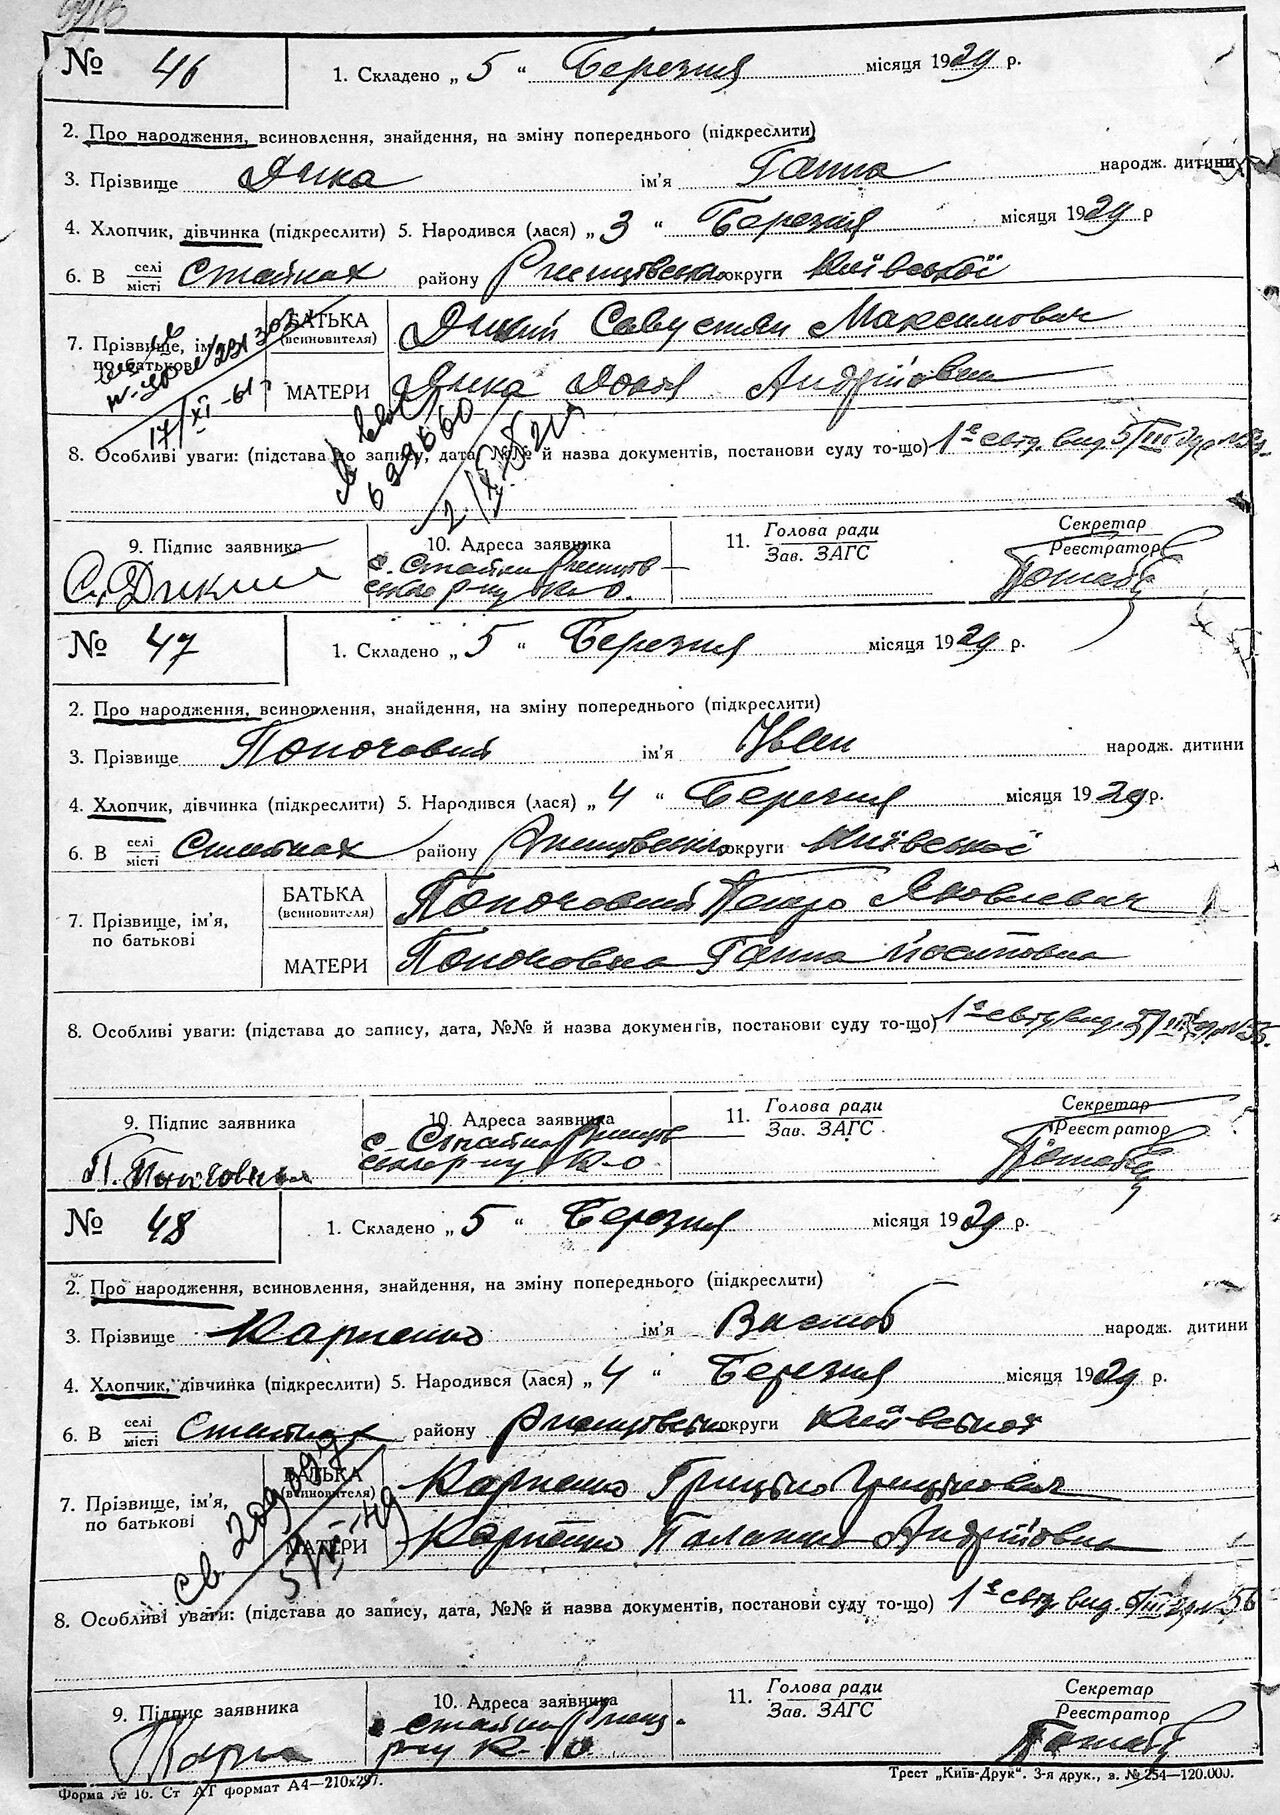 № 46
1. Складено „ 5 “ Березня місяця 1929 р.
2. Про народження, всиновлення, знайдення, на зміну попереднього (підкреслити)
3. Прізвище Дика ім'я Ганна народж. дитини
4. Хлопчик, дівчинка (підкреслити) 5. Народився (лася) „ 3 “ Березня місяця 1929 р
6. В селі місті Стайках району Ржищівського округи Київської
7. Прізвище, ім'я по батькові
БАТЬКА (всиновителя) Дикий Савустян Максимович
МАТЕРИ Дика Андріївна
17/XI-61
8. Особливі уваги: (підстава до запису, дата, №№ й назва документів, постанови суду то-що) 1е свід. вид. 5/III 29р
9. Підпис заявника С. Дикий
10. Адреса заявника с. Стайки Ржищівського р-ну К-О.
11. Голова ради Зав. ЗАГС
Секретар Реєстратор
№ 47
1. Складено „ 5 “ Березня місяця 1929 р.
2. Про народження, всиновлення, знайдення, на зміну попереднього (підкреслити)
3. Прізвище Поночовний ім'я Іван народж. дитини
4. Хлопчик, дівчинка (підкреслити) 5. Народився (лася) „ 4 “ Березня місяця 1929 р.
6. В селі місті Стайках району Ржищівського округи Київської
7. Прізвище, ім'я, по батькові
БАТЬКА (всиновителя) Поночовний Петро Яковлевич
МАТЕРИ Ганна Йосиповна
8. Особливі уваги: (підстава до запису, дата, №№ й назва документів, постанови суду то-що) 1е свід. вид. 5/III 29р № 55.
9. Підпис заявника П.
10. Адреса заявника с. Стайки Ржищівського р-ну К-О.
11. Голова ради Зав. ЗАГС
Секретар Реєстратор
№ 48
1. Складено „ 5 “ Березня місяця 1929 р.
2. Про народження, всиновлення, знайдення, на зміну попереднього (підкреслити)
3. Прізвище Карпенко ім'я народж. дитини
4. Хлопчик, дівчинка (підкреслити) 5. Народився (лася) „ 4 “ Березня місяця 1929 р.
6. В селі місті Стайках району Ржищівського округи Київської
7. Прізвище, ім'я, по батькові
БАТЬКА (всиновителя) Карпенко Грицько Грицькович
МАТЕРИ Карпенко Палажка Андріївна
св. 209097
8. Особливі уваги: (підстава до запису, дата, №№ й назва документів, постанови суду то-що) 1е свід. вид. 5/III 29р № 56
9. Підпис заявника
10. Адреса заявника с. Стайки Ржищ. р-ну К-О.
11. Голова ради Зав. ЗАГС
Секретар Реєстратор
Форма № 16. Ст АТ формат А4—210х297.
Трест „Київ-Друк“. 3-я друк., з. № 254—120.000.